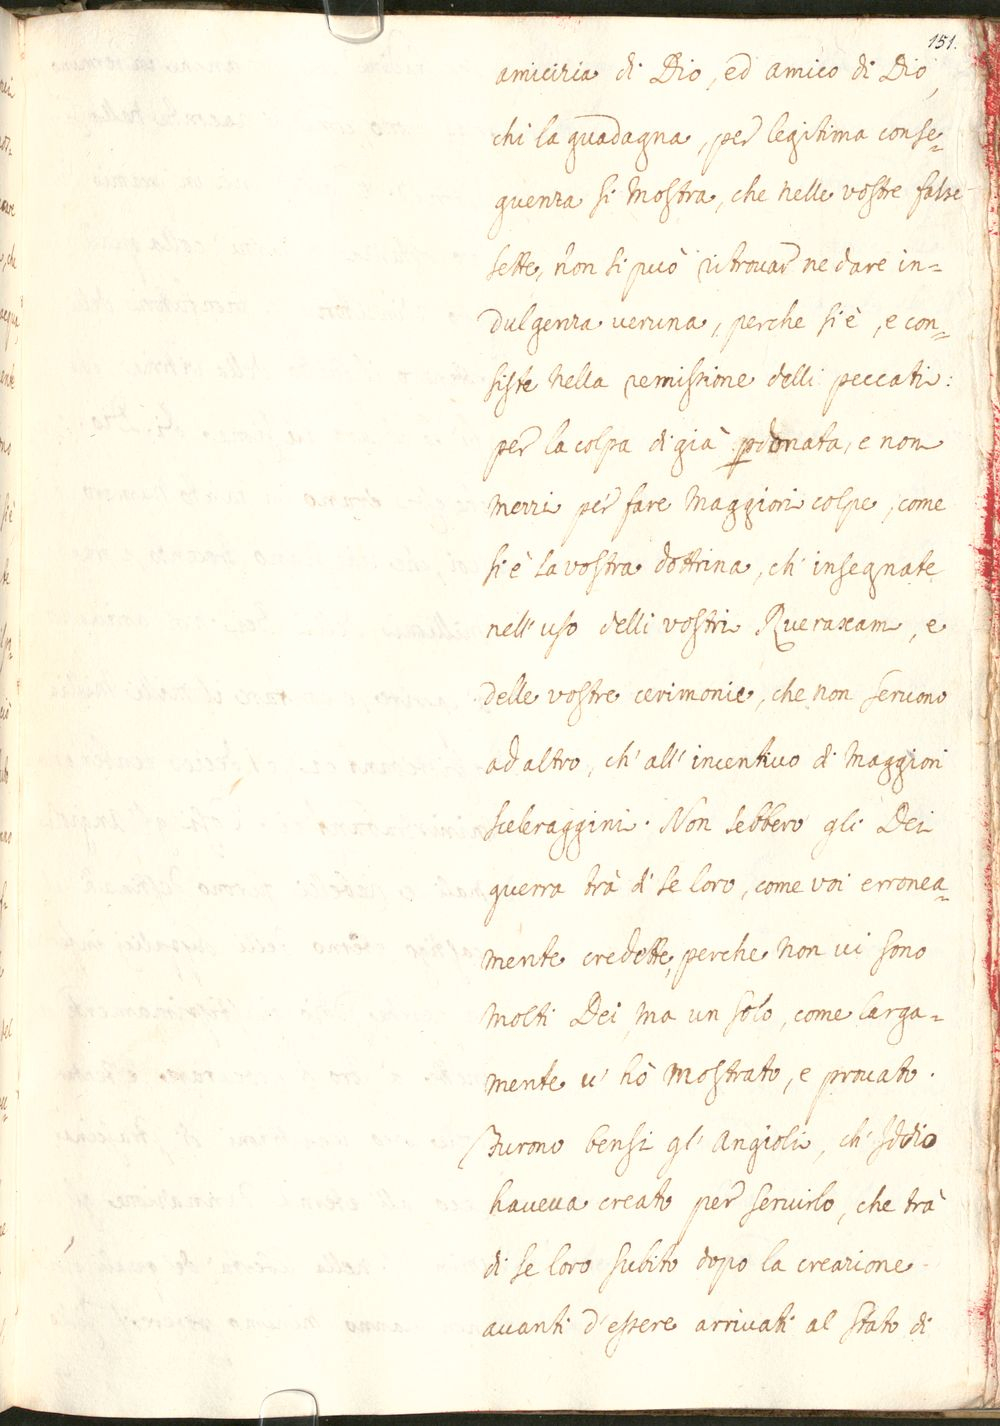 151.
amicizia di Dio, ed amico di Dio,
chi la guadagna, per legitima conse=
guenza si mostra, che nelle vostre false
sette, non si può ritrovar ne dare in=
dulgenza veruna, perche si è, e con=
siste nella remissione delli peccati:
per la colpa di già pdonata, e non
mezzi per fare maggiori colpe, come
si è la vostra dottrina, ch' insegnate
nell' uso delli vostri Rueraxam, e
delle vostre cerimonie, che non servono
ad altro, ch' all' incentivo di maggiori
sceleraggini. Non sebbero gli Dei
guerra trà di se loro, come voi erronea=
mente credette, perche non vi sono
molti Dei ma un solo, come larga=
mente v' hò mostrato, e provato.
Furono bensi gl' Angioli, ch' Iddio
haveva creato per servirlo, che trà
di se loro subito dopo la creazione
avanti d'essere arrivati al stato di